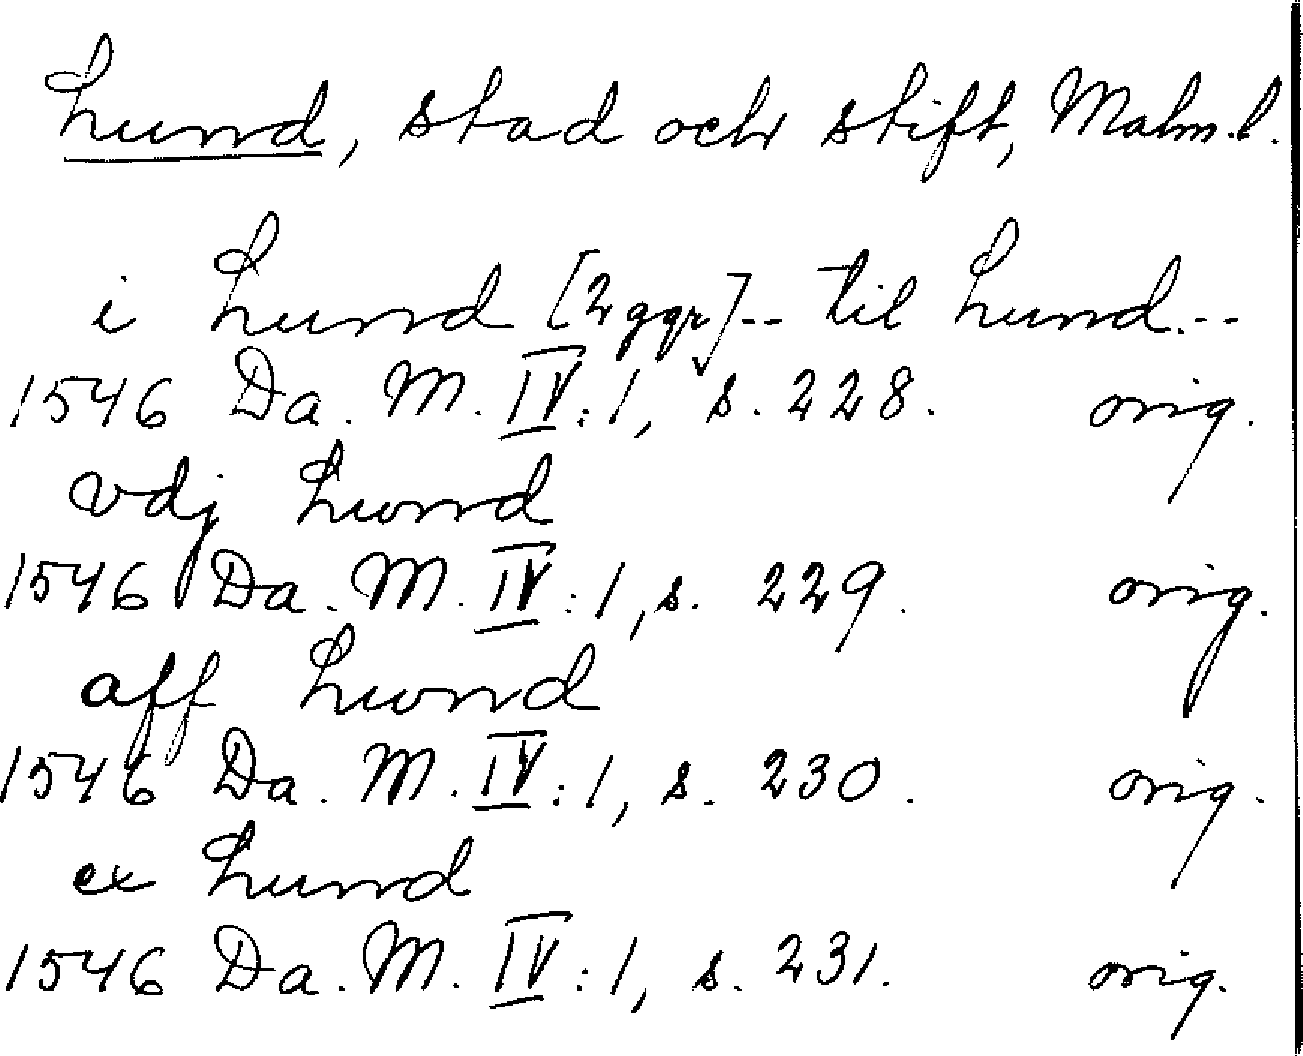 Lund, stad och stift, Malm. l.
i Lund [2 ggr] -- til Lund --
1546 Da. M. IV:1, s. 228. orig.
vdj Lund
1546 Da. M. IV:1, s. 229. orig.
aff Lund
1546 Da. M. IV:1, s. 230. orig.
ex Lund
1546 Da. M. IV:1, s. 231. orig.